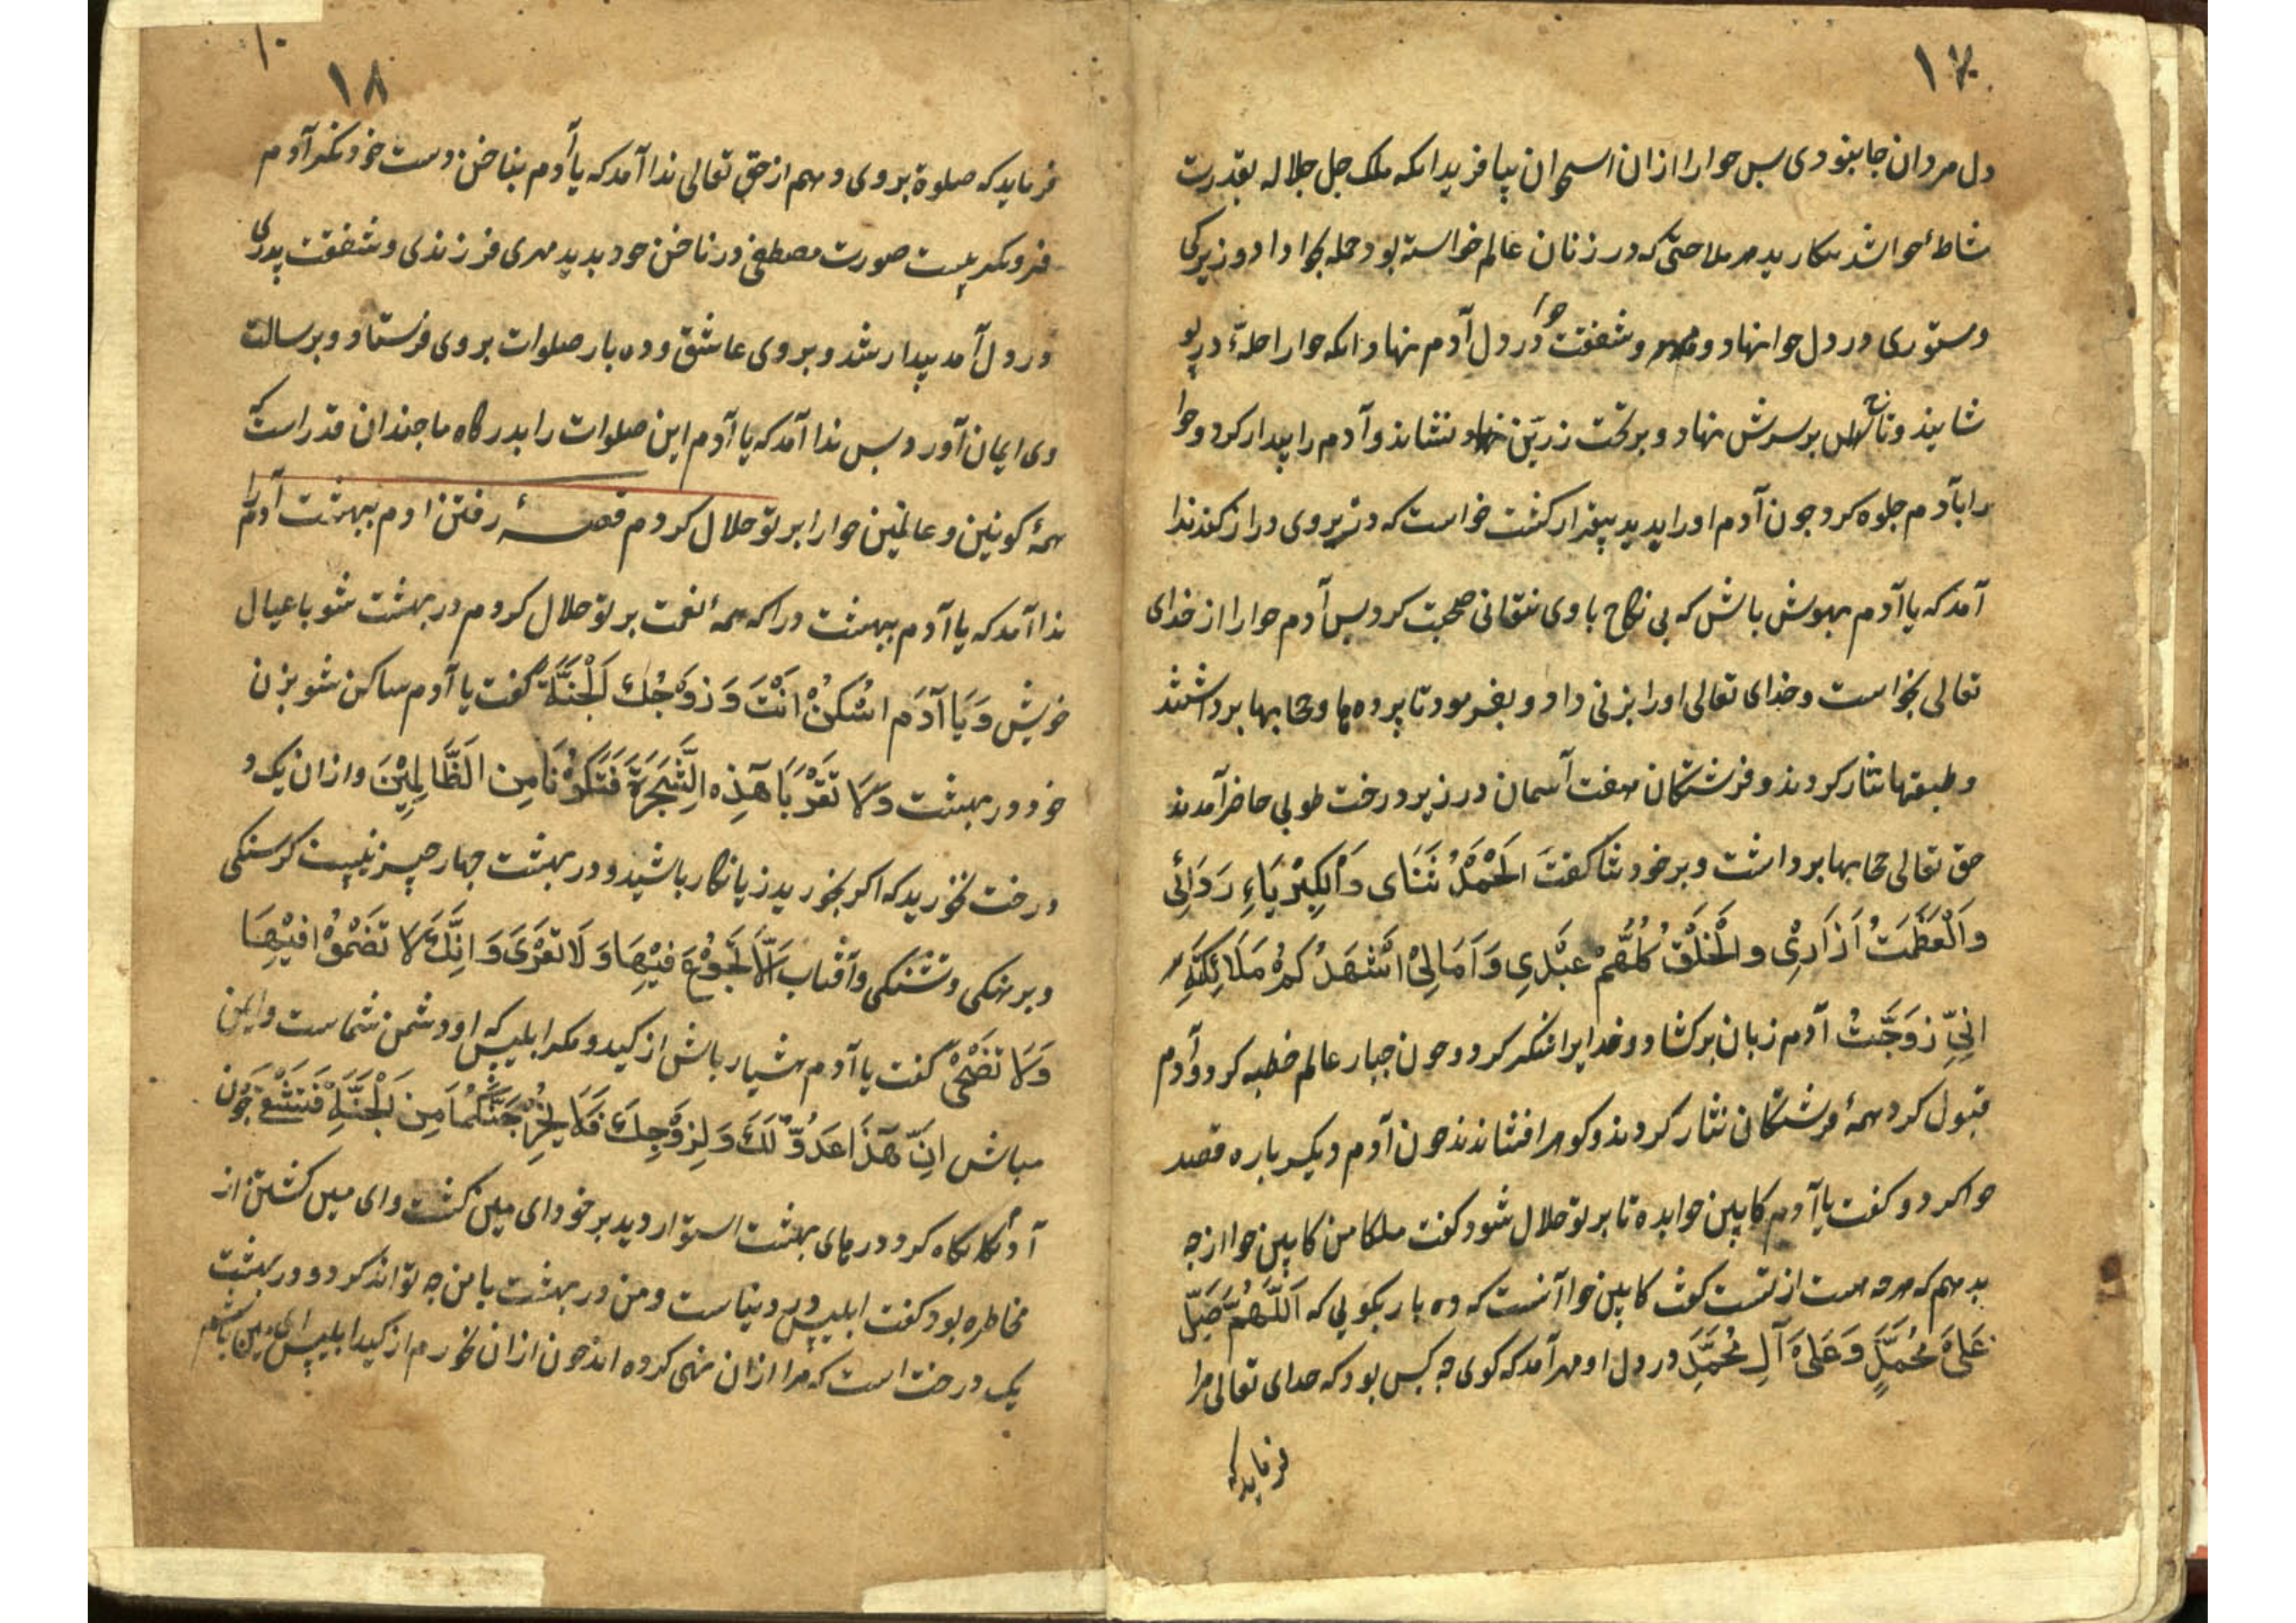 ۱۷
دل مردان جا بنودی بس حوا را ازان استخوان بیافرید انکه ملک جل جلاله بقدرت
مشاطهٔ حوا شد بنکارید هر ملاحتی که در زنان عالم خواسته بود جمله بحوا داد و زیرکی
و مستوری در دل حوا نهاد و مهر و شفقت حوا در دل آدم نهاد و انکه حوا را حلهٔ در
شانیذ و تاج بر سرش نهاد و بر تخت زرین نشاند و آدم را بیدار کرد و حوا
را بآدم جلوه کرد جون آدم او را بدید بیقرار کشت خواست که دست بروی دراز کند ندا
آمد که یا آدم بهوش باش که بی نکاح با وی نتوانی صحبت کرد بس آدم حوا را از خدای
تعالی بخواست و خدای تعالی او را بزنی داد و بفرمود تا پرده ها و حجابها برداشتند
و طبقها نثار کردند و فرشتکان هفت آسمان در زیر درخت طوبی حاضر آمدند
حق تعالی حجابها برداشت و بر خود ثنا کفت اَلْحَمْدُ ثَنَای وَالْکِبْرِیَاءِ رَدَائِی
وَالْعَظَمَتُ اَزَارِیْ وَالْخَلْقُ کُلُّهُمْ عَبْدِی وَ اَمَالِیْ اشْهَدُکُمْ مَلَائِکَتِی
اِنِّی زَوَّجْتُ آدم زبان برکشاد و خدایرا شکر کرد و جون جبار عالم خطبه کرد و آدم
قبول کرد همهٔ فرشتکانی نثار کردند و کوهر افشاندند جون آدم دیکر باره قصد
حوا کرد و کفت یا آدم کابین حوا بده تا بر تو حلال شود کفت ملکا من کابین حوا از چه
بدهم که هرچه هست از تست کفت کابین حوا آنست که ده بار بکویی که اَللّٰهُمَّ صَلِّ
عَلیٰ مُحَمَّدٍ وَ عَلیٰ آلِ مُحَمَّدٍ در دل او مهر آمد که کوی چه کس بود که خدای تعالی مرا
فرماید که
۱۸
فرماید که صلوة بروی دهم از حق تعالی ندا آمد که یا آدم بناخن دست خود نکر آدم
فرونکریست صورت مصطفی در ناخن خود بدید مهری فرزندی و شفقت پدری
در دل آمد پیدار شد و بروی عاشق و ده بار صلوات بروی فرستاد و برسالت
وی ایمان آورد بس ندا آمد که یا آدم این صلوات را بدرکاه ما جندان قدر است که
همهٔ کونین و عالمین حوا را بر تو حلال کردم قصهٔ رفتن ادم ببهشت آدم را
ندا آمد که یا آدم ببهشت درا که همهٔ نعمت بر تو حلال کردم در بهشت شو با عیال
خویش وَ یَا آدَم اسْکُنْ اَنْتَ وَ زَوْجُكَ لْجَنَّةَ کفت یا آدم ساکن شو بزن
خود در بهشت وَلَا تَقْرَبَا هٰذِهِ الشَّجَرَةَ فَتَکُوْنَا مِنَ الظَّالِمِیْنَ و ازان یک
درخت نخورید که اکر بخورید زیانکار باشید و در بهشت جهار چیز نیست کرسنکی
و برهنکی و تشنکی و آفتاب اَلَّا تَجُوْعَ فِیْهَا وَلَا تَعْرَیٰ وَ اِنَّكَ لَا تَضْمَوُا فِیْهَا
وَلَا تَضْحیٰ کفت یا آدم هشیار باش از کید و مکر ابلیس که او دشمن شماست و ایمن
مباش اِنَّ هٰذَا عَدُوٌّ لَكَ وَ لِزَوْجِكَ فَلَا یُخْرِجَنَّکُمَا مِنَ لْجَنَّةِ فَتَشْقیٰ جون
آدم نکاه کرد درهای بهشت استوار دید بر خود ایمین کشت و ایمین کشتن از
مخاطره بود کفت ابلیس در دنیاست و من در بهشت با من چه تواند کرد و در بهشت
یک درخت است که مرا ازان نهی کرده اند جون ازان نخورم از کید ابلیس ایمن باشم